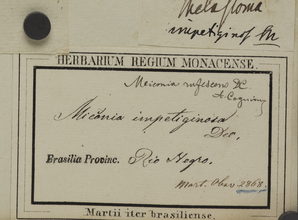 Melastoma
impetiginos M
HERBARIUM REGIUM MONACENSE.
Miconia rufescens DC
A Cogniaux
Miconia impetiginosa
Dec.
Brasilia Provinc. Rio Negro.
Mart. Obs. 2868.
Martii iter brasiliense.